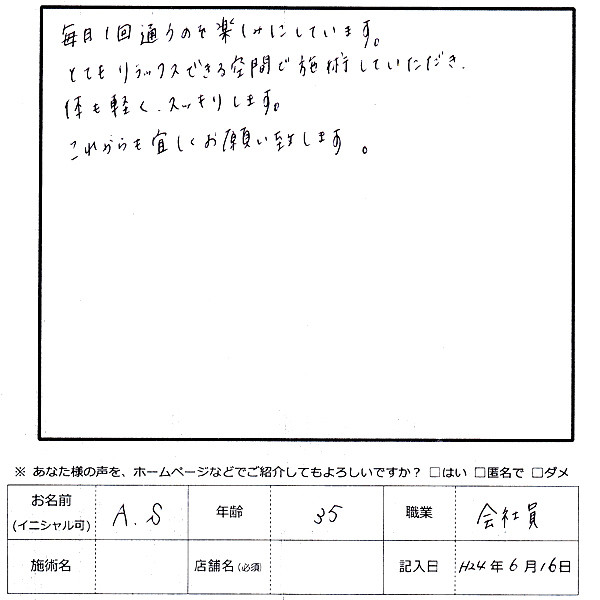 毎月1回通うのを楽しみにしています。
とてもリラックスできる空間で施術していただき、
体も軽く、スッキリします。
これからも宜しくお願い致します。
※ あなた様の声を、ホームページなどでご紹介してもよろしいですか？ □はい □匿名で □ダメ
お名前 (イニシャル可) A.S 年齢 35 職業 会社員
施術名 店舗名(必須) 記入日 H24年6月16日